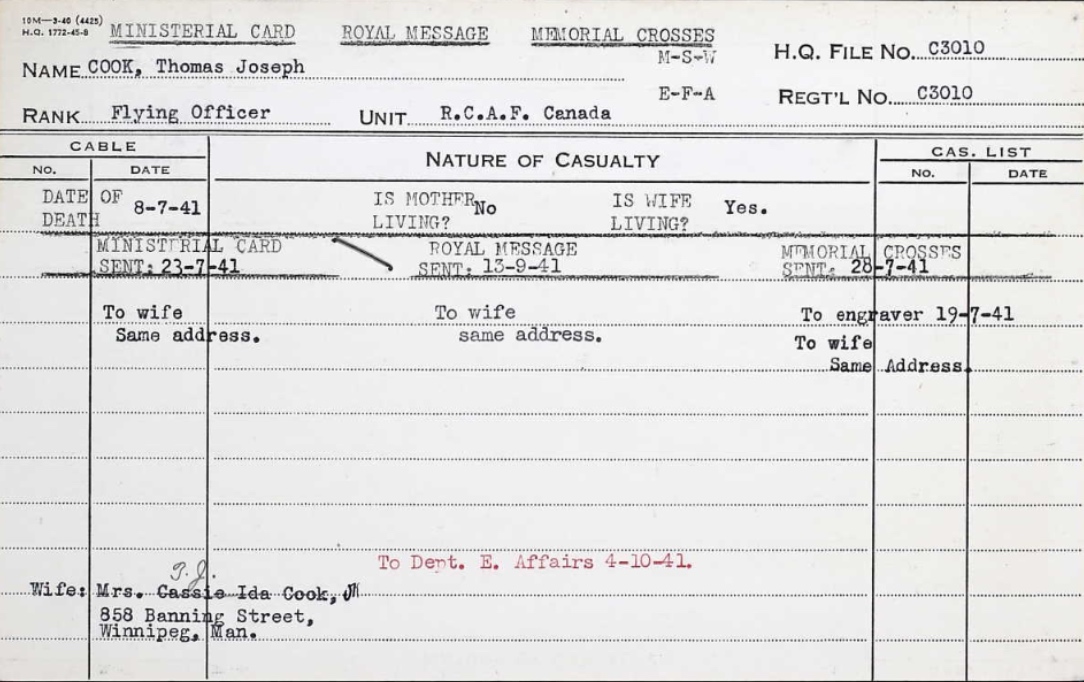 10M—3-40 (4425)
H.Q. 1772-45-8
MINISTERIAL CARD ROYAL MESSAGE MEMORIAL CROSSES
M-S-W
H.Q. FILE NO. C3010
NAME COOK, Thomas Joseph
E-F-A
REGT'L NO. C3010
RANK Flying Officer UNIT R.C.A.F. Canada
CABLE NATURE OF CASUALTY CAS. LIST
NO. DATE NO. DATE
DATE OF DEATH 8-7-41 IS MOTHER LIVING? No IS WIFE LIVING? Yes.
MINISTERIAL CARD ROYAL MESSAGE MEMORIAL CROSSES
SENT: 23-7-41 SENT: 13-9-41 SENT: 28-7-41
To wife To wife To engraver 19-7-41
Same address. same address. To wife
Same Address.
To Dept. E. Affairs 4-10-41.
T.J.
Wife: Mrs. Cassie Ida Cook,
858 Banning Street,
Winnipeg, Man.